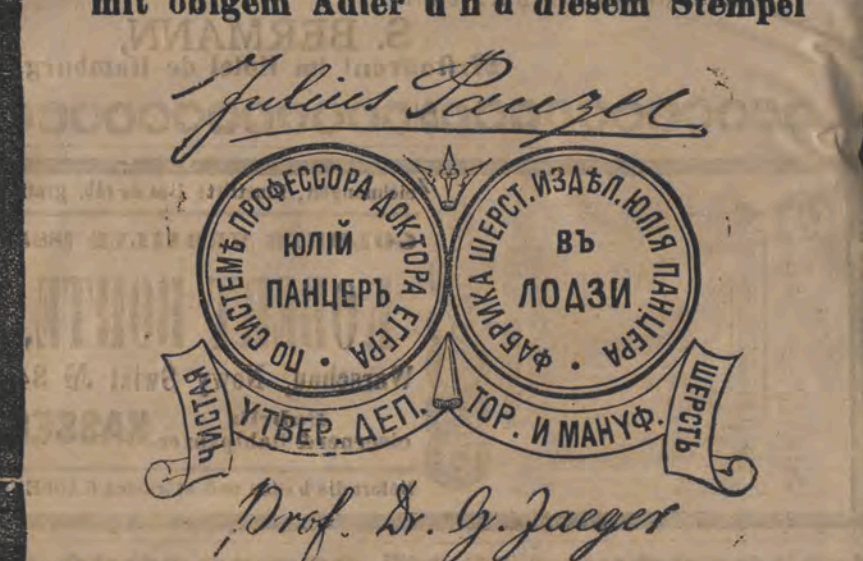 mit obigem Adler und diesem Stempel
Julius Panzer
ПО СИСТЕМѢ ПРОФЕССОРА ДОКТОРА ЕГЕРА
ЮЛІЙ
ПАНЦЕРЪ
ФАБРИКА ШЕРСТ. ИЗДѢЛ. ЮЛІЯ ПАНЦЕРА
ВЪ
ЛОДЗИ
ЧИСТАЯ
УТВЕР. ДЕП.
ТОР. И МАНУФ.
ШЕРСТЬ
Prof. Dr. G. Jaeger